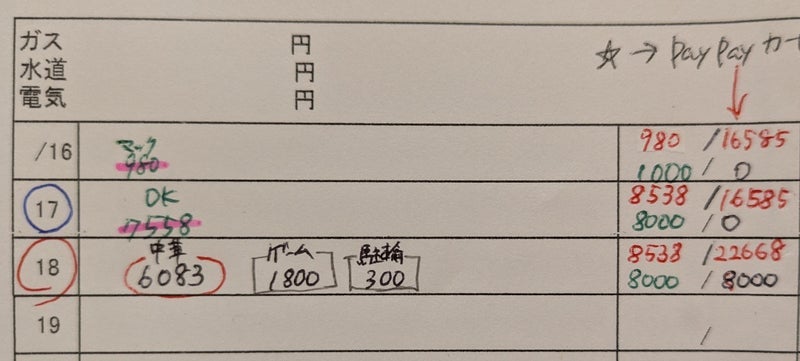 ガス 円
水道 円
電気 円
☆→PayPayカー
/16 マック 980
980 /16585
1000 / 0
17 OK 7558
8538 /16585
8000 / 0
18 中華 6083 ゲーム 1800 駐輪 300
8538 /22668
8000 / 8000
19 /